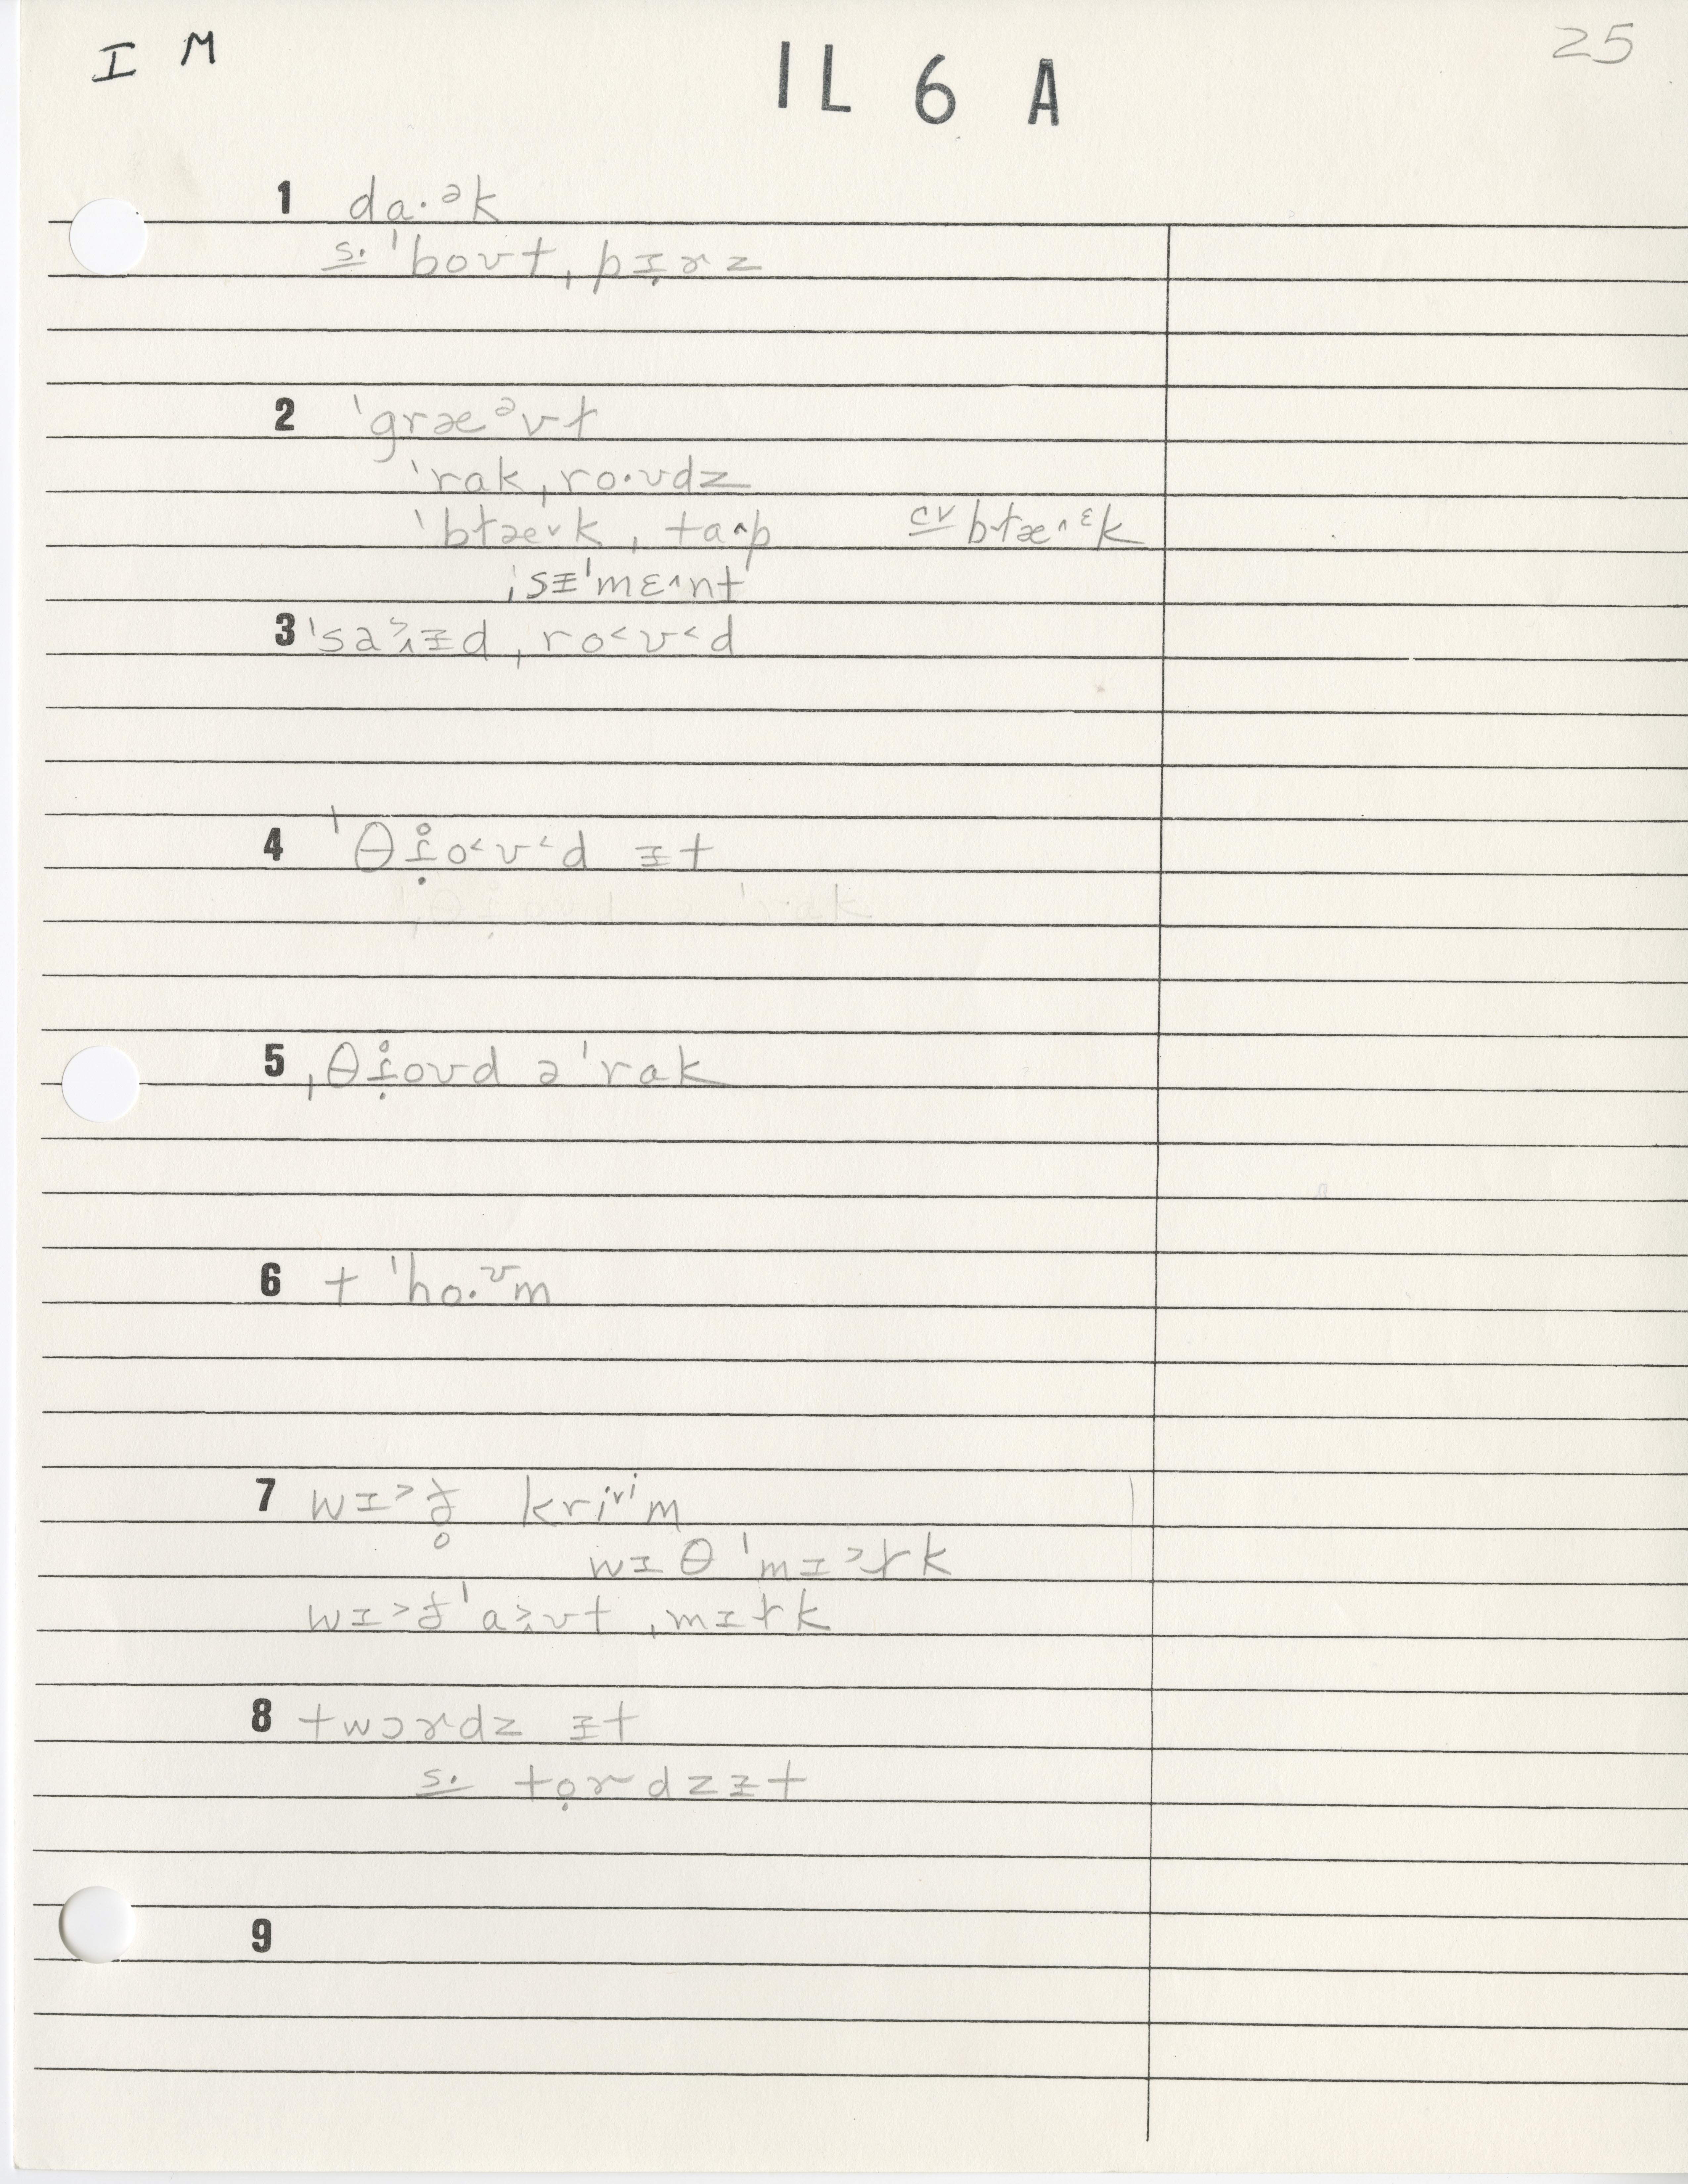 I M
IL 6 A
25
1 da·ᵊk
s. ˈboʊt ˌpɪ̣ɚz
2 ˈgræᵊʊt
ˈrak ˌro·ʊdz
ˈbɫæ˅k ˌta˄p cv bɫæ˄ᵋk
ˌsᵻˈmɛ˄nt
3 ˈsa˃˄ᵻd ˌro˂ʊ˂d
4 ˈθɹ̣̊o˂ʊ˂d ᵻt
5 ˌθɹ̣̊oʊd ə ˈrak
6 t ˈho·ᶷm
7 wɪ˃ð̥ kriᵛⁱm
wɪθ ˈmɪ˃ɫk
wɪ˃ð ˈa˃˄ʊt ˌmɪɫk
8 twɔɚdz ᵻt
s. tọɚdz ᵻt
9